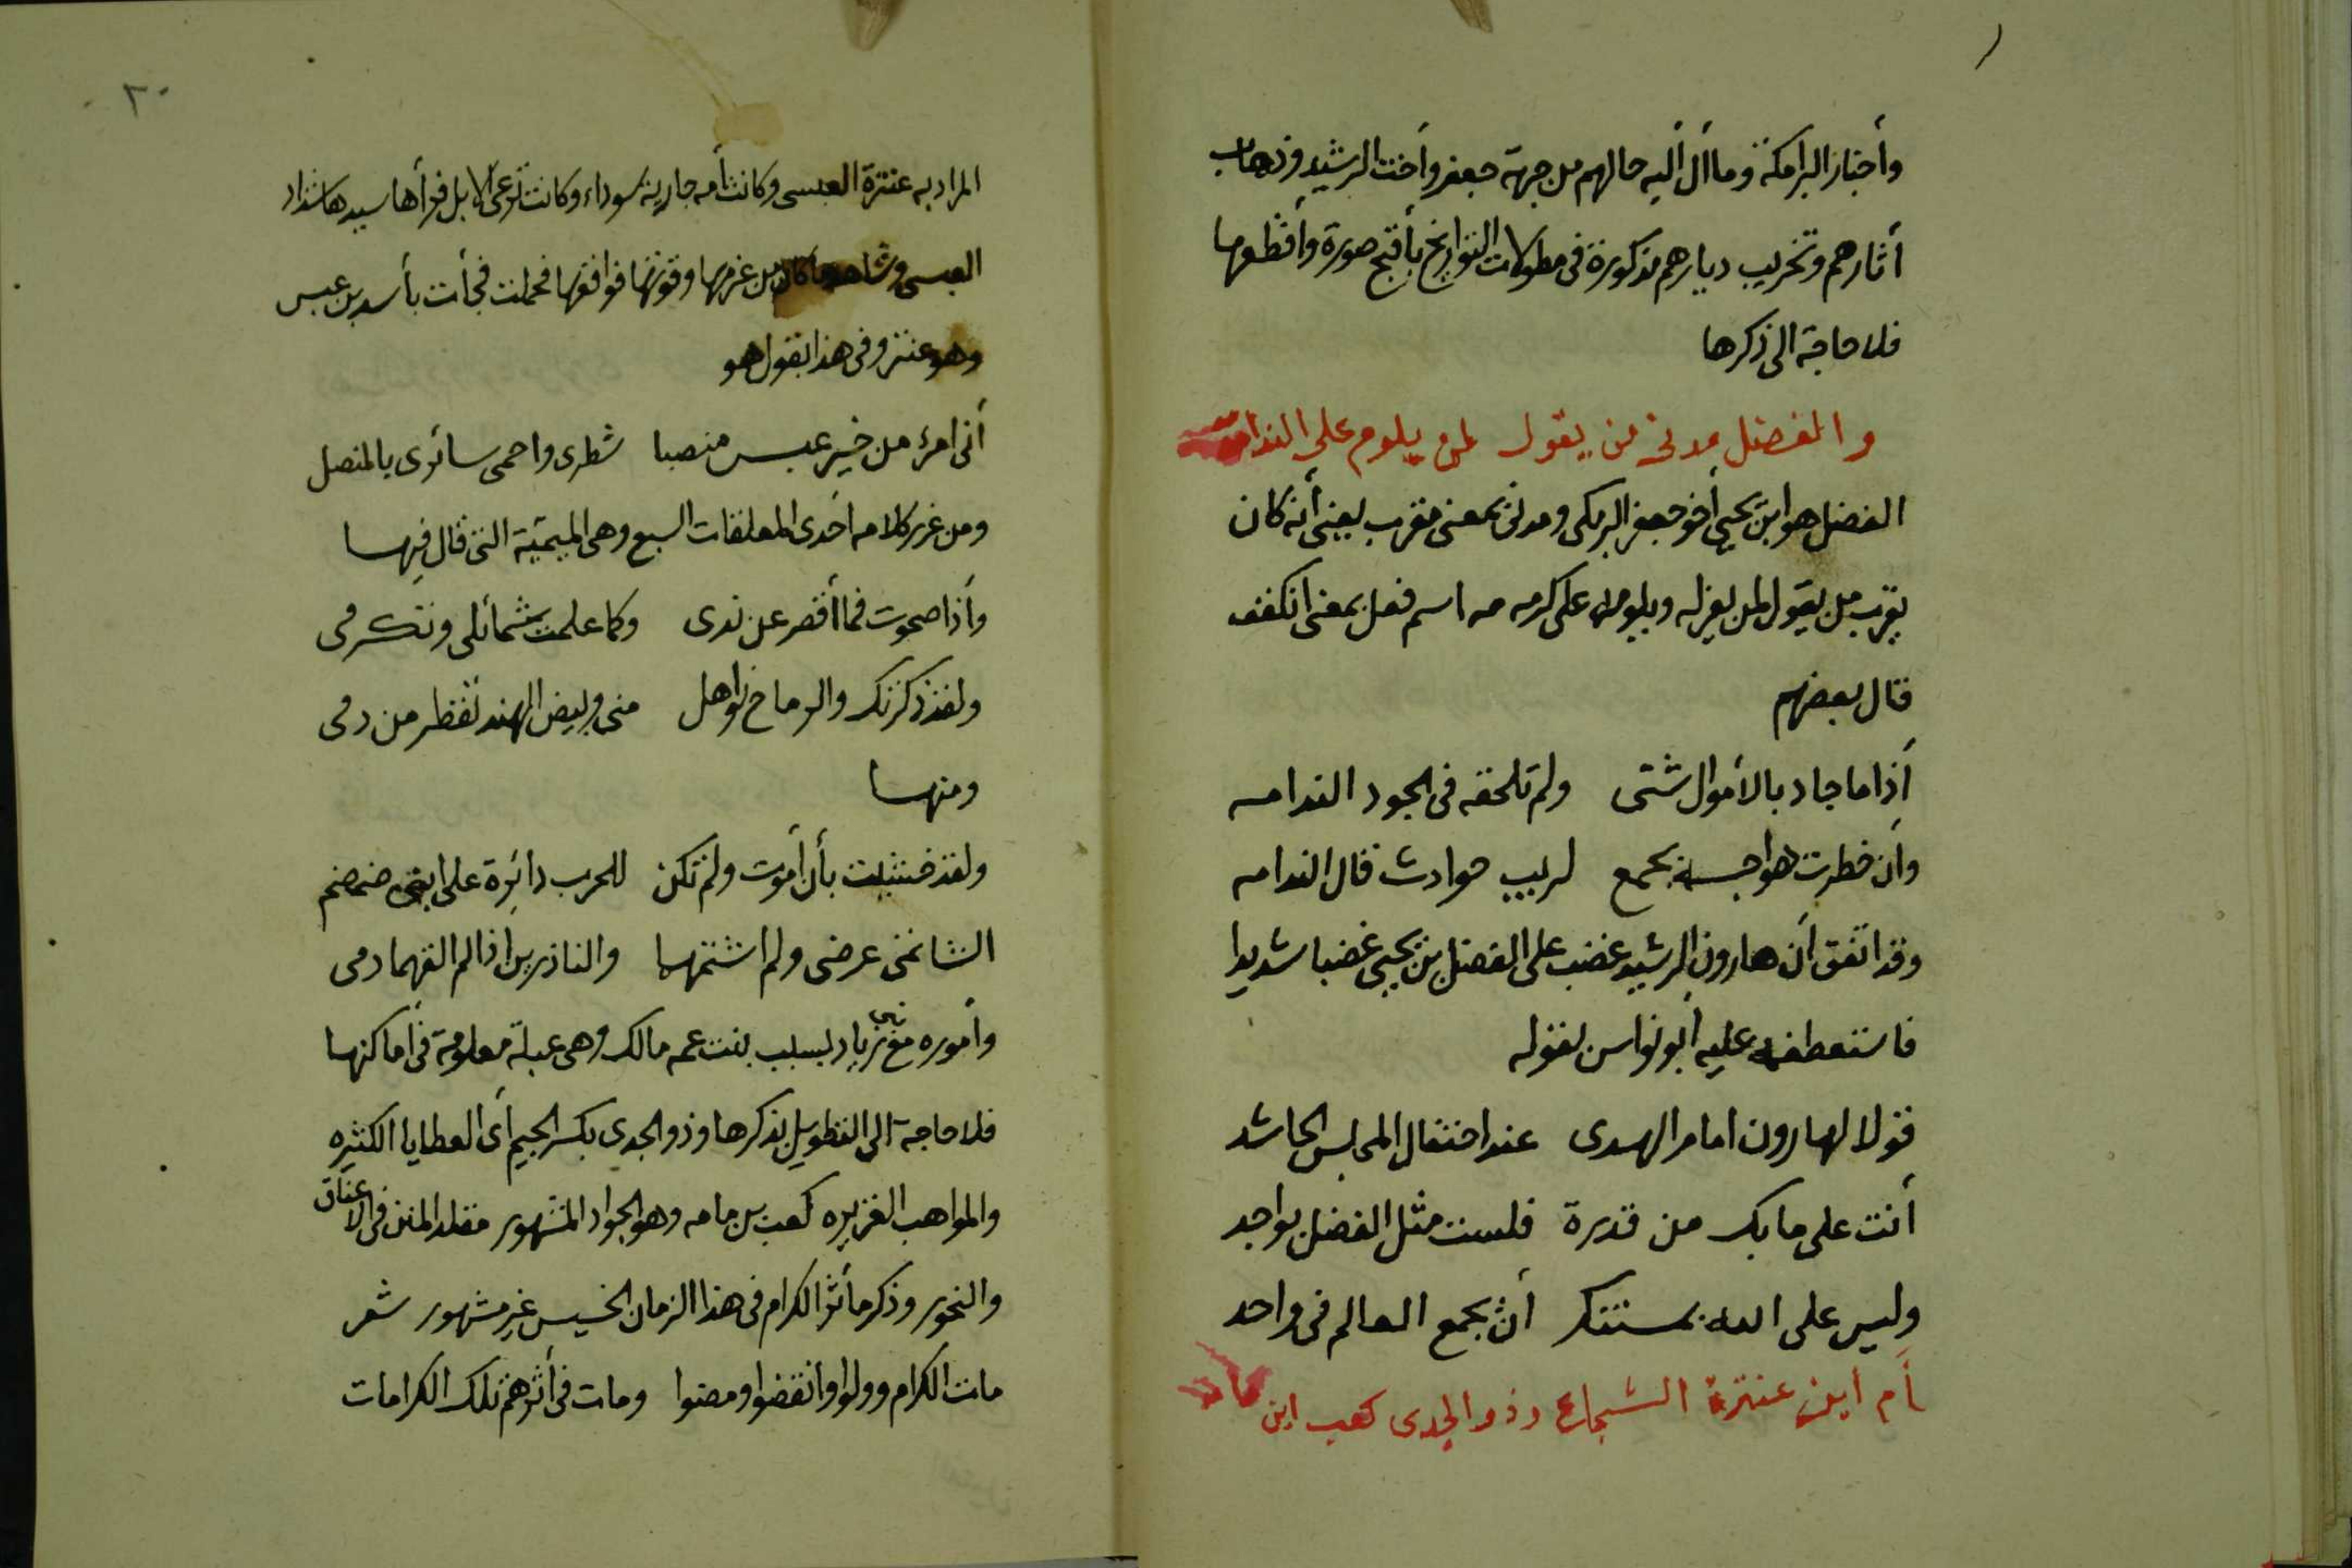 وأخبار البرامكة وما أل أليه حالهم من جهة جعفر وأخت الرشيد وذهاب
أثارهم وتخريب ديارهم مذكورة فى مطولات التواريخ بأقبح صورة وأفظعها
فلا حاجة الى ذكرها
والفضل مدنى من يقول لمن يلوم على الندا مه
الفضل هو ابن يحيى أخو جعفر البرمكى ومدنى بمعنى مقرب يعنى أنه كان
يقرب من يقول لمن يعزله ويلومه على كرمه مه اسم فعل بمعنى انكفف
قال بعضهم
أذا ما جاد بالأموال شتى ولم تلحقه فى الجود الندامه
وأن خطرت هواجسه بجمع لريب حوادث قال الندامه
وقد اتفق أن هارون الرشيد غضب على الفضل بن يحيى غضبا شديدا
فاستعطفه عليه أبو نواس بقوله
قولا لهارون امام الهدى عند احتفال المجلس الحاشد
أنت على ما بك من قدرة فلست مثل الفضل بواجد
وليس على الله بمستنكر أن يجمع العالم فى واحد
أم اين عنترة الشجاع وذو الجدى كعب ابن مامه
٢٠
المراد به عنترة العبسى وكانت أمه جارية سوداء وكانت ترعى الابل فرأها سيدها شداد
العبسى وشاهد ما كان من عزمها وقوتها فوافقها فحملت فجأت بأسد بن عبس
وهو عنتر وفى هذا يقول هو
أنى امرؤ من خير عبس منصبا شطرى واحمى سائرى بالمنصل
ومن غرر كلامه أحدى المعلقات السبع وهى الميمية التى قال فيها
وأذا صحوت فما أقصر عن ندى وكما علمت شمائلى وتكرمى
ولقد ذكرتك والرماح نواهل منى وبيض الهند تقطر من دمى
ومنها
ولقد خشيت بأن أموت ولم تكن للحرب دائرة على ابنى ضمضم
الشاتمى عرضى ولم اشتمهما والناذرين اذا لم القهما دمى
وأموره مع بنى زياد بسبب بنت عمه مالك وهى عبلة معلومة فى أماكنها
فلا حاجة الى التطويل بذكرها وذو الجدى بكسر الجيم أى العطايا الكثيره
والمواهب الغزيره كعب بن مامه وهو الجواد المشهور مقلد المنن فى الاعناق
والنحور وذكر مأثر الكرام فى هذا الزمان الخسيس غير مشهور شعر
مات الكرام وولوا وانقضوا ومضوا ومات فى أثرهم تلك الكرامات